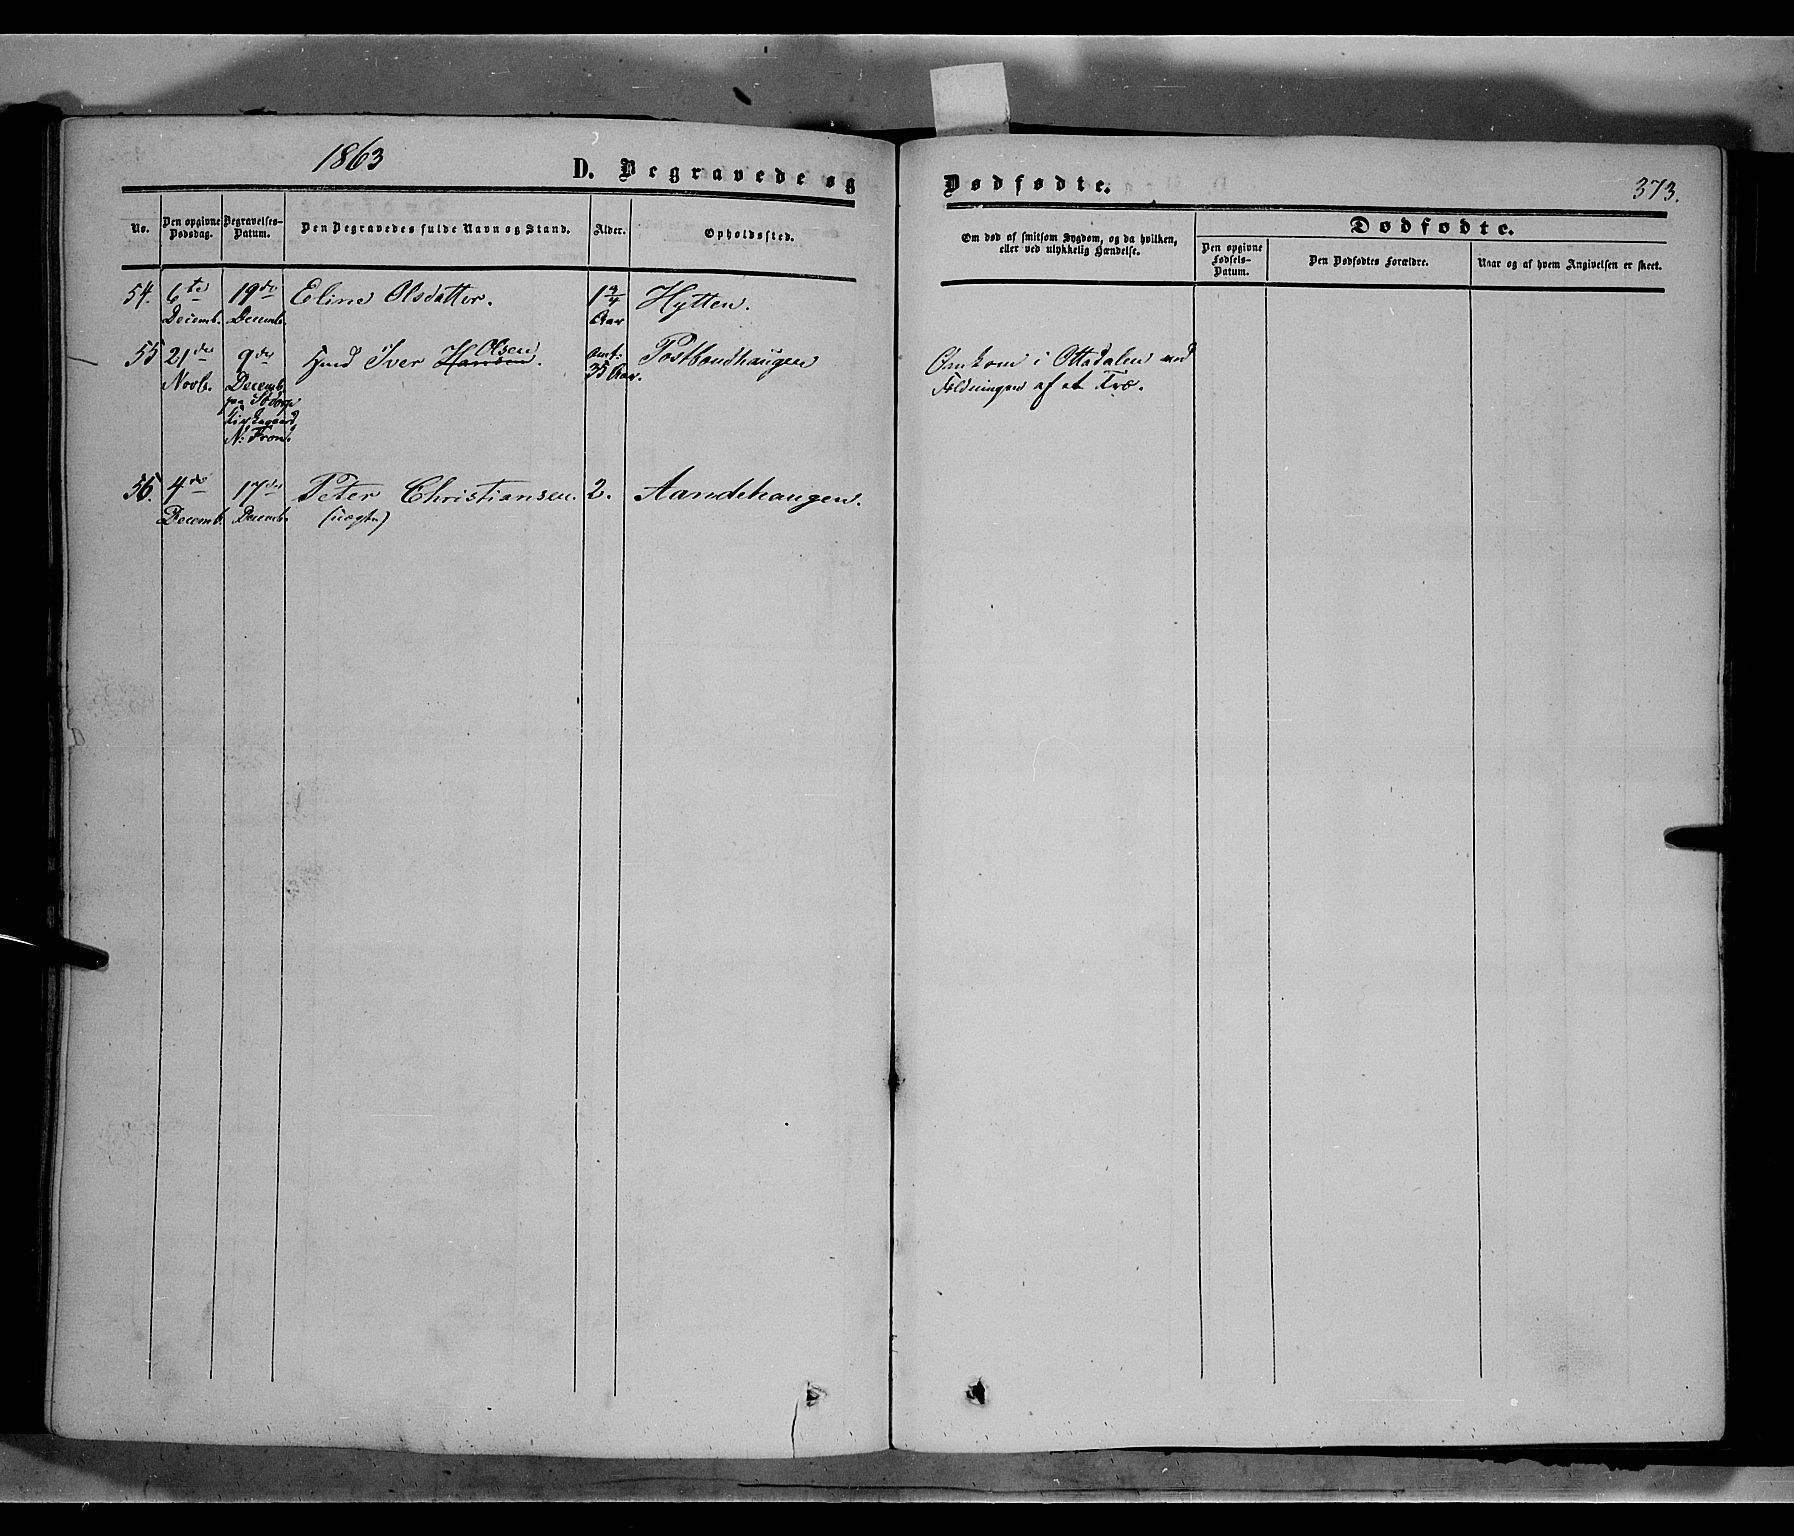 1863
D. Begravede og Dødfødte.
373.
No.
Den opgivne Dødsdag.
Begravelses-Datum.
Den Begravedes fulde Navn og Stand.
Alder.
Opholdssted.
Om død af smitsom Sygdom, og da hvilken,
eller ved ulykkelig Hændelse.
Dødfødte.
Den opgivne Fødsels-Datum.
Den Dødfødtes Forældre.
Naar og af hvem Angivelsen er skeet.
54. 6te 19de Eline Olsdatter. 1 3/4 Hytten.
Decemb. Decemb. Aar
Olsen
55 21de 9de Iver Hansen. Omt: Postbondhaugen Omkom i Ottadalen ved
Novb. Decemb. 35 Aar. Fældningen af et Træ.
paa
Kirkegaard,
N: Fron.
56. 4de 17de Peter Christiansen. 2. Aandehaugen.
Decemb. Decemb. (uægte)